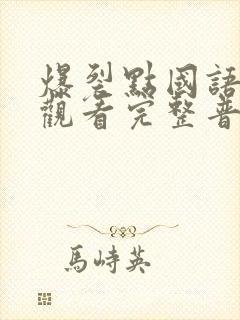 爆裂點國語
觀看完整普
馬峙英